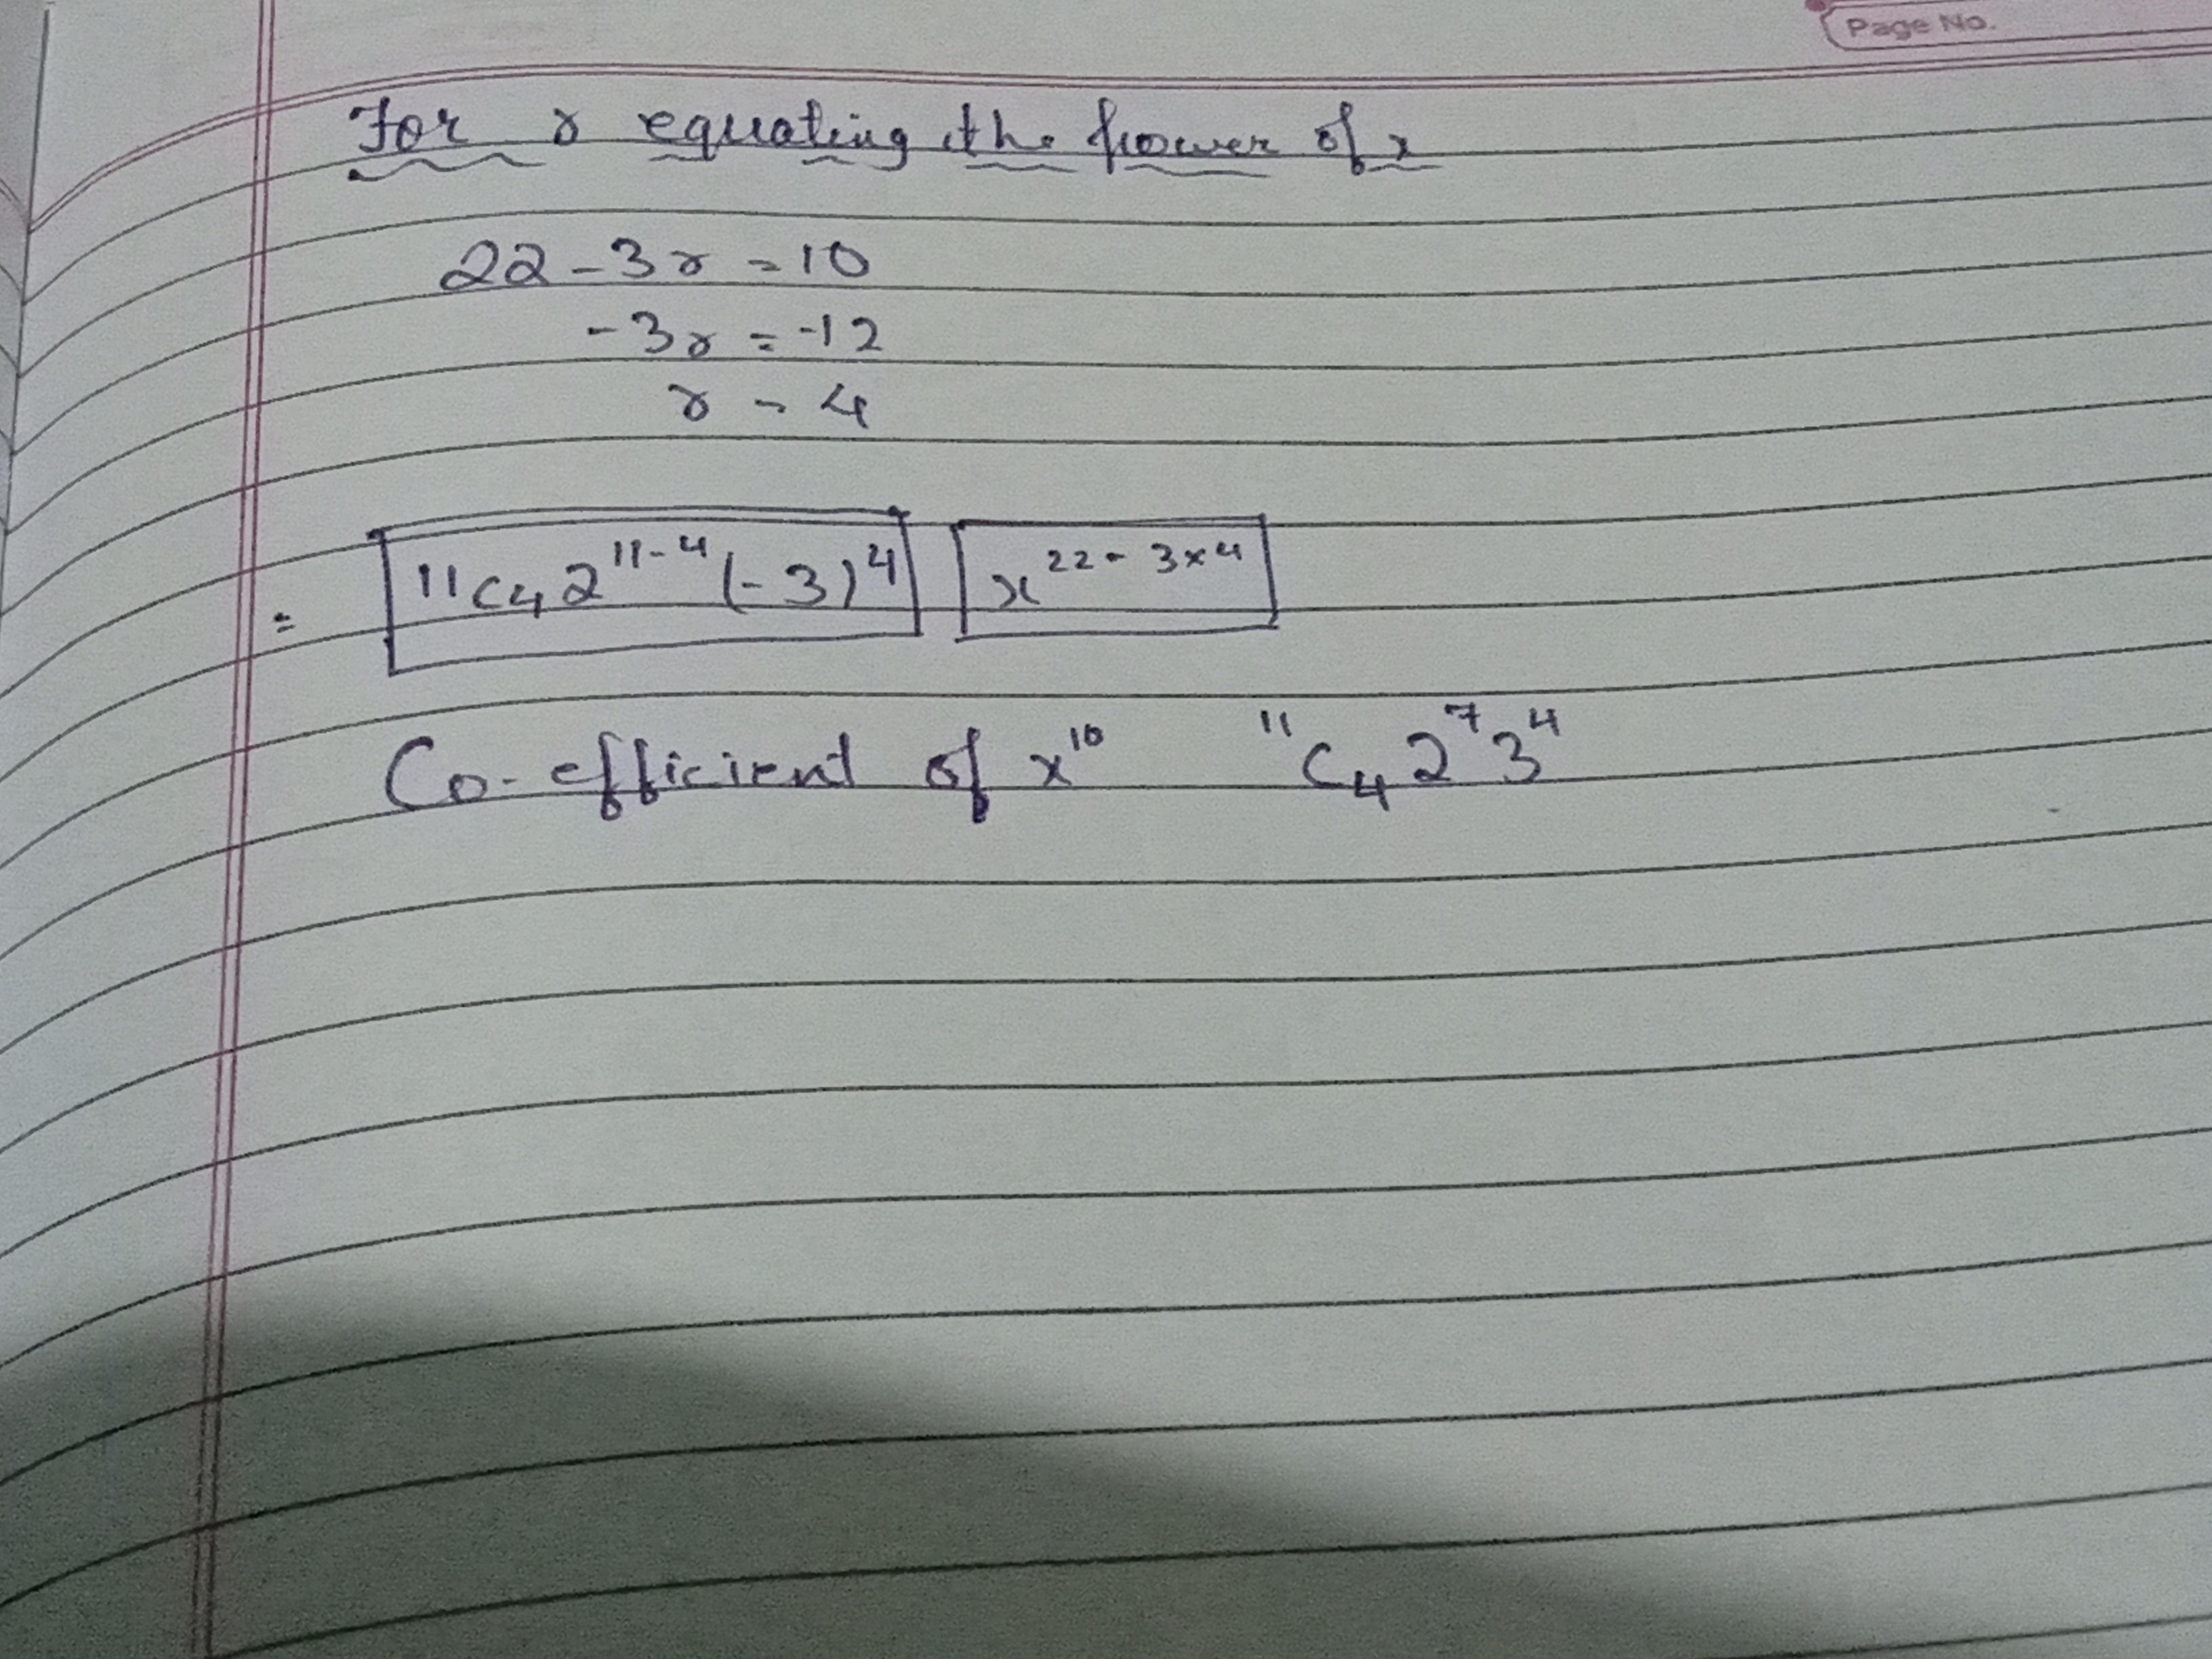 Page No.
For r equating the power of x
22 - 3r = 10
-3r = -12
r = 4
= ¹¹C₄ 2¹¹⁻⁴ (-3)⁴ x²²⁻³ˣ⁴
Co-efficient of x¹⁰ ¹¹C₄ 2⁷ 3⁴